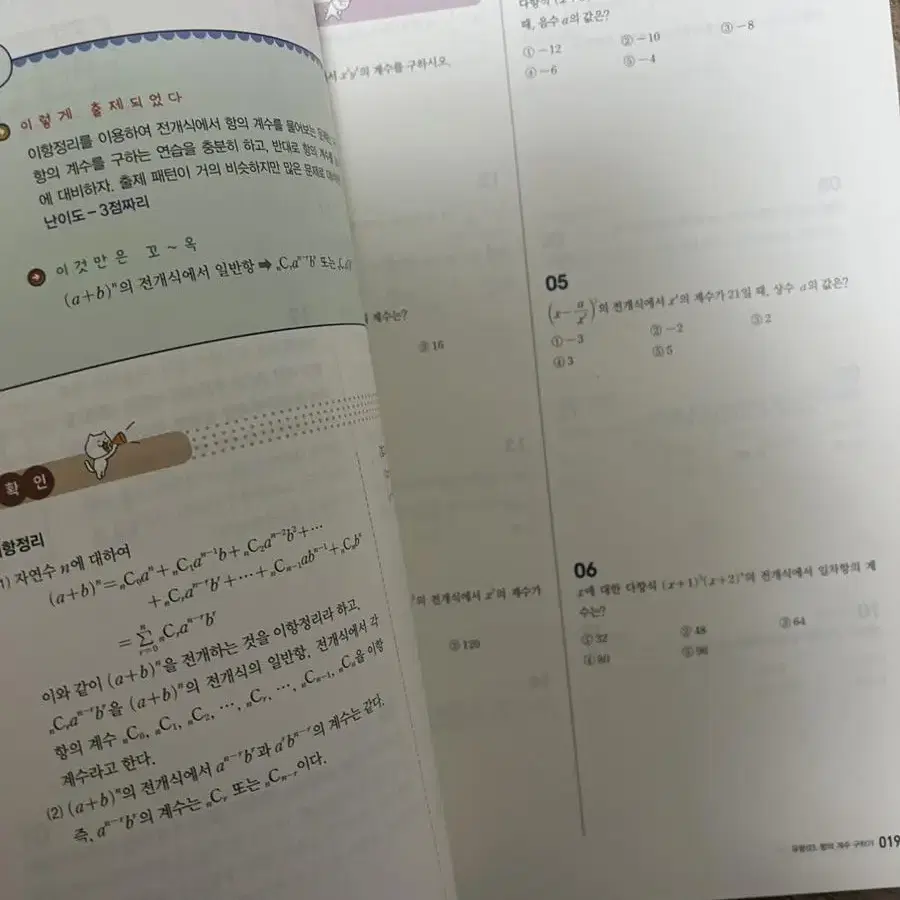 이렇게 출제되었다
이항정리를 이용하여 전개식에서 항의 계수를 물어보는
항의 계수를 구하는 연습을 충분히 하고, 반대로 항의
에 대비하자. 출제 패턴이 거의 비슷하지만 많은 문제로
난이도-3점짜리
이것만은 꼬~옥
(a+b)ⁿ의 전개식에서 일반항 ➡ ₙCᵣaⁿ⁻ʳbʳ 또는
확인
항정리
1) 자연수 n에 대하여
(a+b)ⁿ=ₙC₀aⁿ+ₙC₁aⁿ⁻¹b+ₙC₂aⁿ⁻²b²+⋯
+ₙCᵣaⁿ⁻ʳbʳ+⋯+ₙCₙ₋₁abⁿ⁻¹+ₙCₙbⁿ
=∑ⁿᵣ₌₀ ₙCᵣaⁿ⁻ʳbʳ
이와 같이 (a+b)ⁿ을 전개하는 것을 이항정리라 하고,
ₙCᵣaⁿ⁻ʳbʳ을 (a+b)ⁿ의 전개식의 일반항, 전개식에서 각
항의 계수 ₙC₀, ₙC₁, ₙC₂, ⋯, ₙCᵣ, ⋯, ₙCₙ₋₁, ₙCₙ을 이항
계수라고 한다.
(2) (a+b)ⁿ의 전개식에서 aⁿ⁻ʳbʳ과 aʳbⁿ⁻ʳ의 계수는 같다.
즉, aⁿ⁻ʳbʳ의 계수는 ₙCᵣ 또는 ₙCₙ₋ᵣ이다.
의 계수를 구하시오.
계수는?
③ 16
의 전개식에서 의 계수가
③ 120
다항식
때, 음수 a의 값은?
①-12 ②-10 ③-8
④-6 ⑤-4
05
의 전개식에서 의 계수가 21일 때, 상수 a의 값은?
①-3 ②-2 ③2
④3 ⑤5
06
x에 대한 다항식 의 전개식에서 일차항의 계
수는?
①32 ②48 ③64
④80 ⑤96
항의 계수 구하기 019